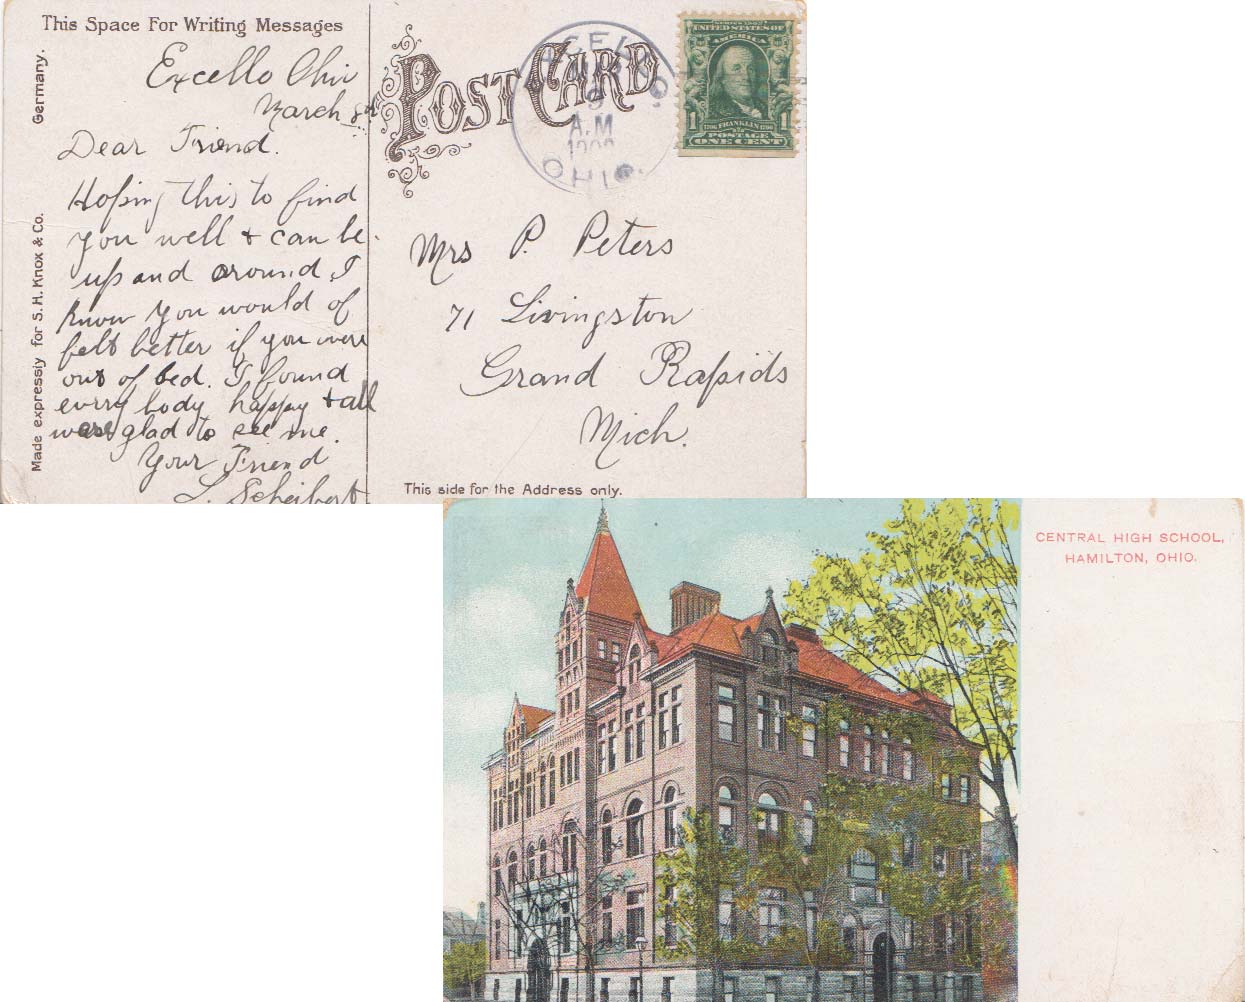 This Space For Writing Messages
Germany.
Made expressly for S.H. Knox & Co.
Excello Ohio
March 8th
Dear Friend.
Hoping this to find
you well & can be
up and around, I
know you would of
felt better if you were
out of bed. I found
every body happy & all
was glad to see me.
Your Friend
L. Scheibert
POST CARD
EXCELLO
9
A.M
OHIO.
SERIES 1902
UNITED STATES OF
AMERICA
1 FRANKLIN 1
POSTAGE
ONE CENT
Mrs P. Peters
71 Livingston
Grand Rapids
Mich.
This side for the Address only.
CENTRAL HIGH SCHOOL,
HAMILTON, OHIO.